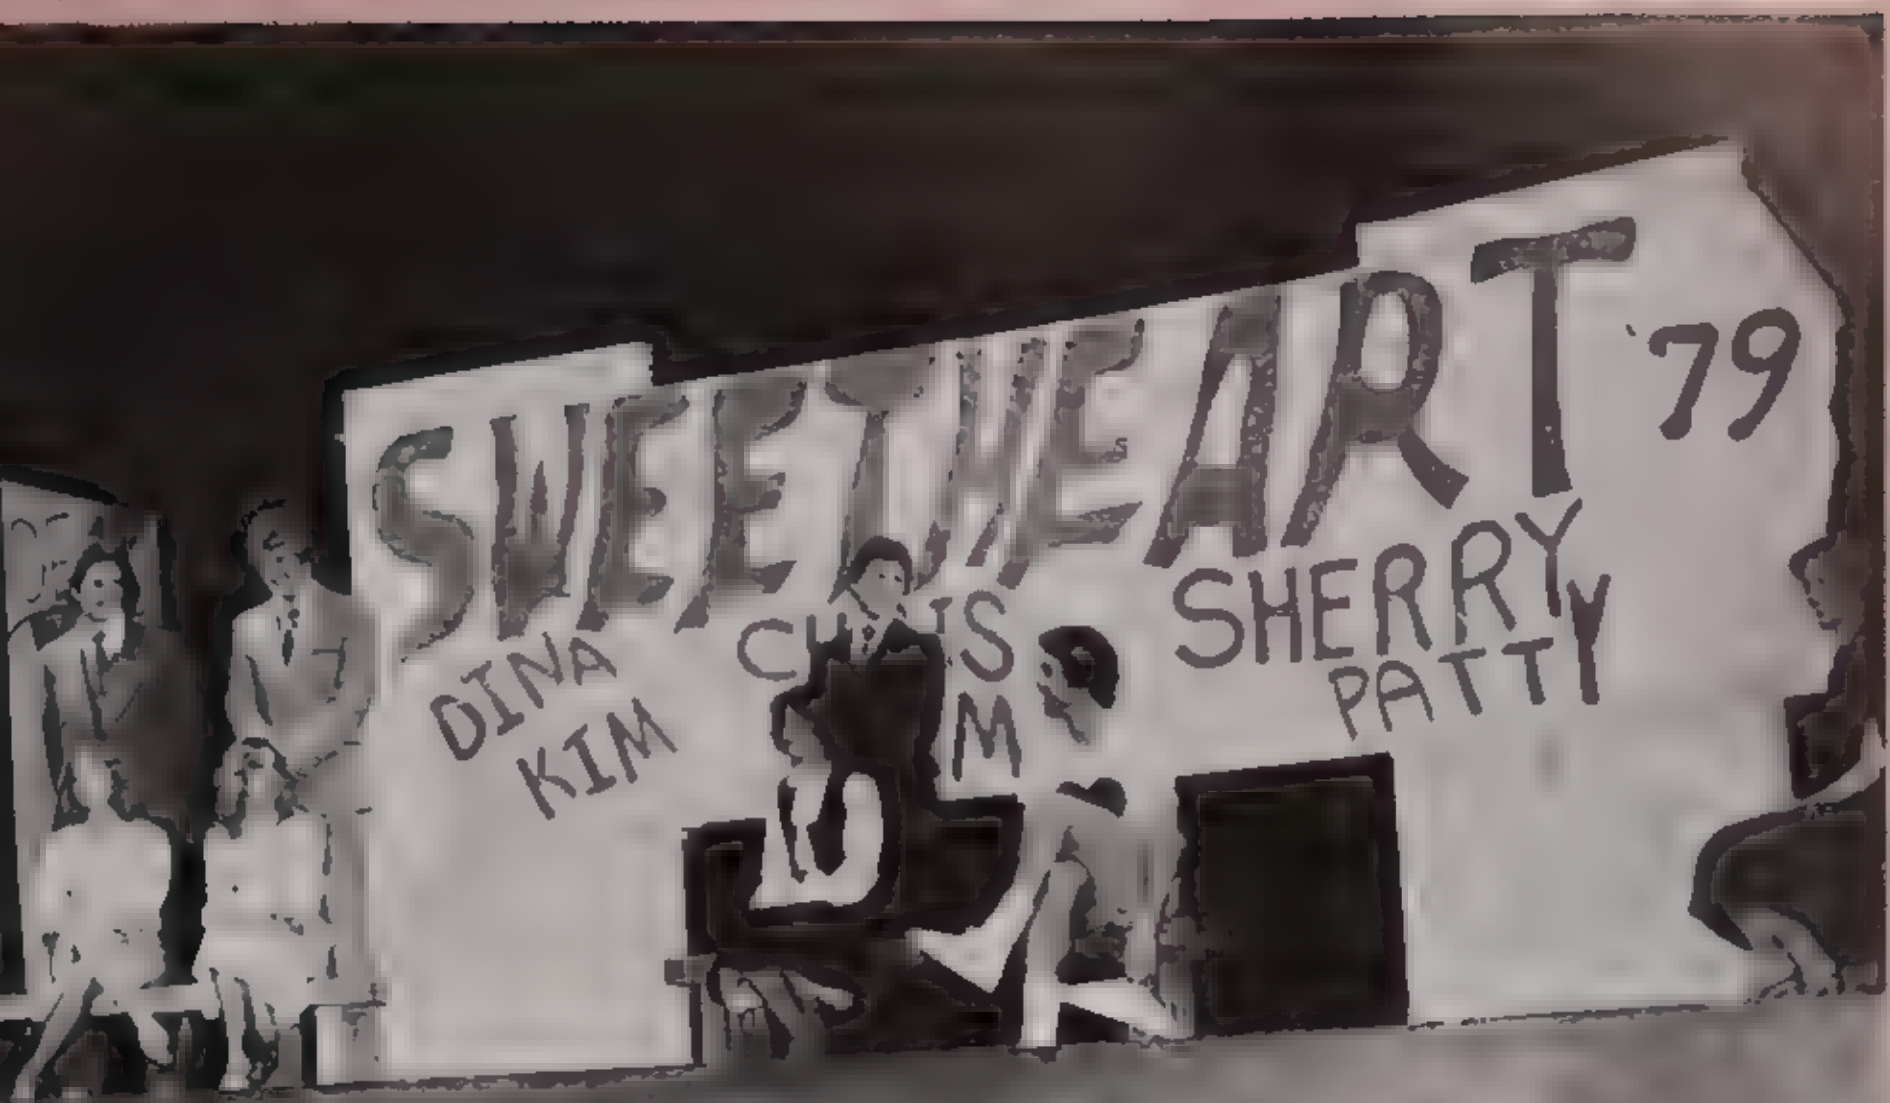 SWEETHEART '79
DINA
KIM
CHRIS
SHERRY
PATTY